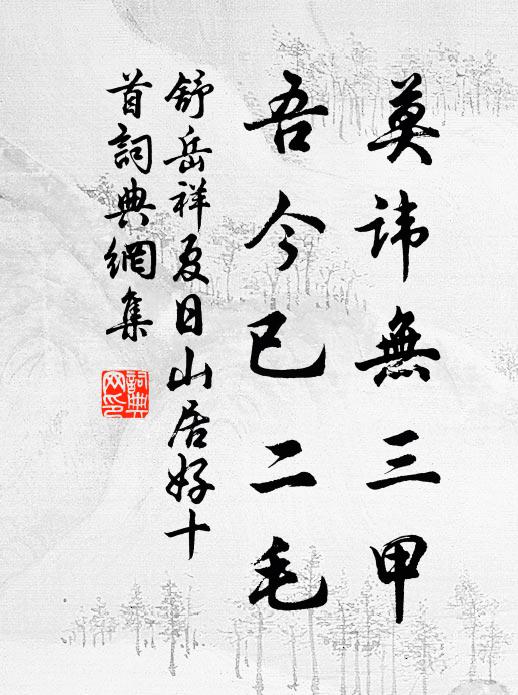 莫諱無三甲
吾今已二毛
舒岳祥夏日山居好十
首詞典網集
詞典
网印